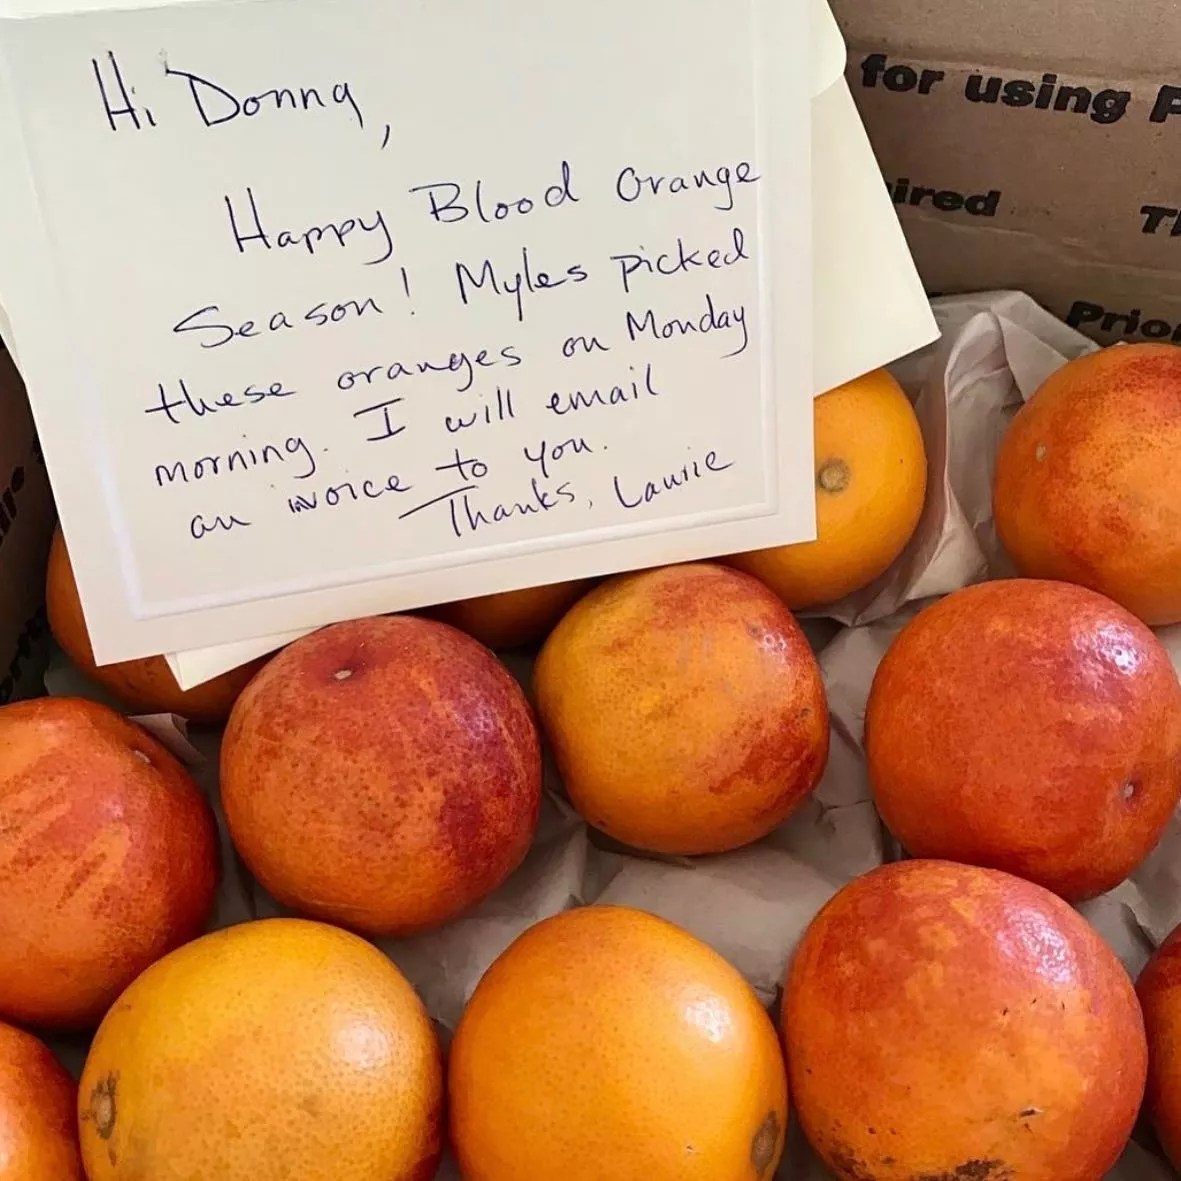 Hi Donna,
Happy Blood Orange
Season! Myles picked
these oranges on Monday
morning. I will email
an invoice to you.
Thanks, Laurie
for using P
ired
Th
Prio